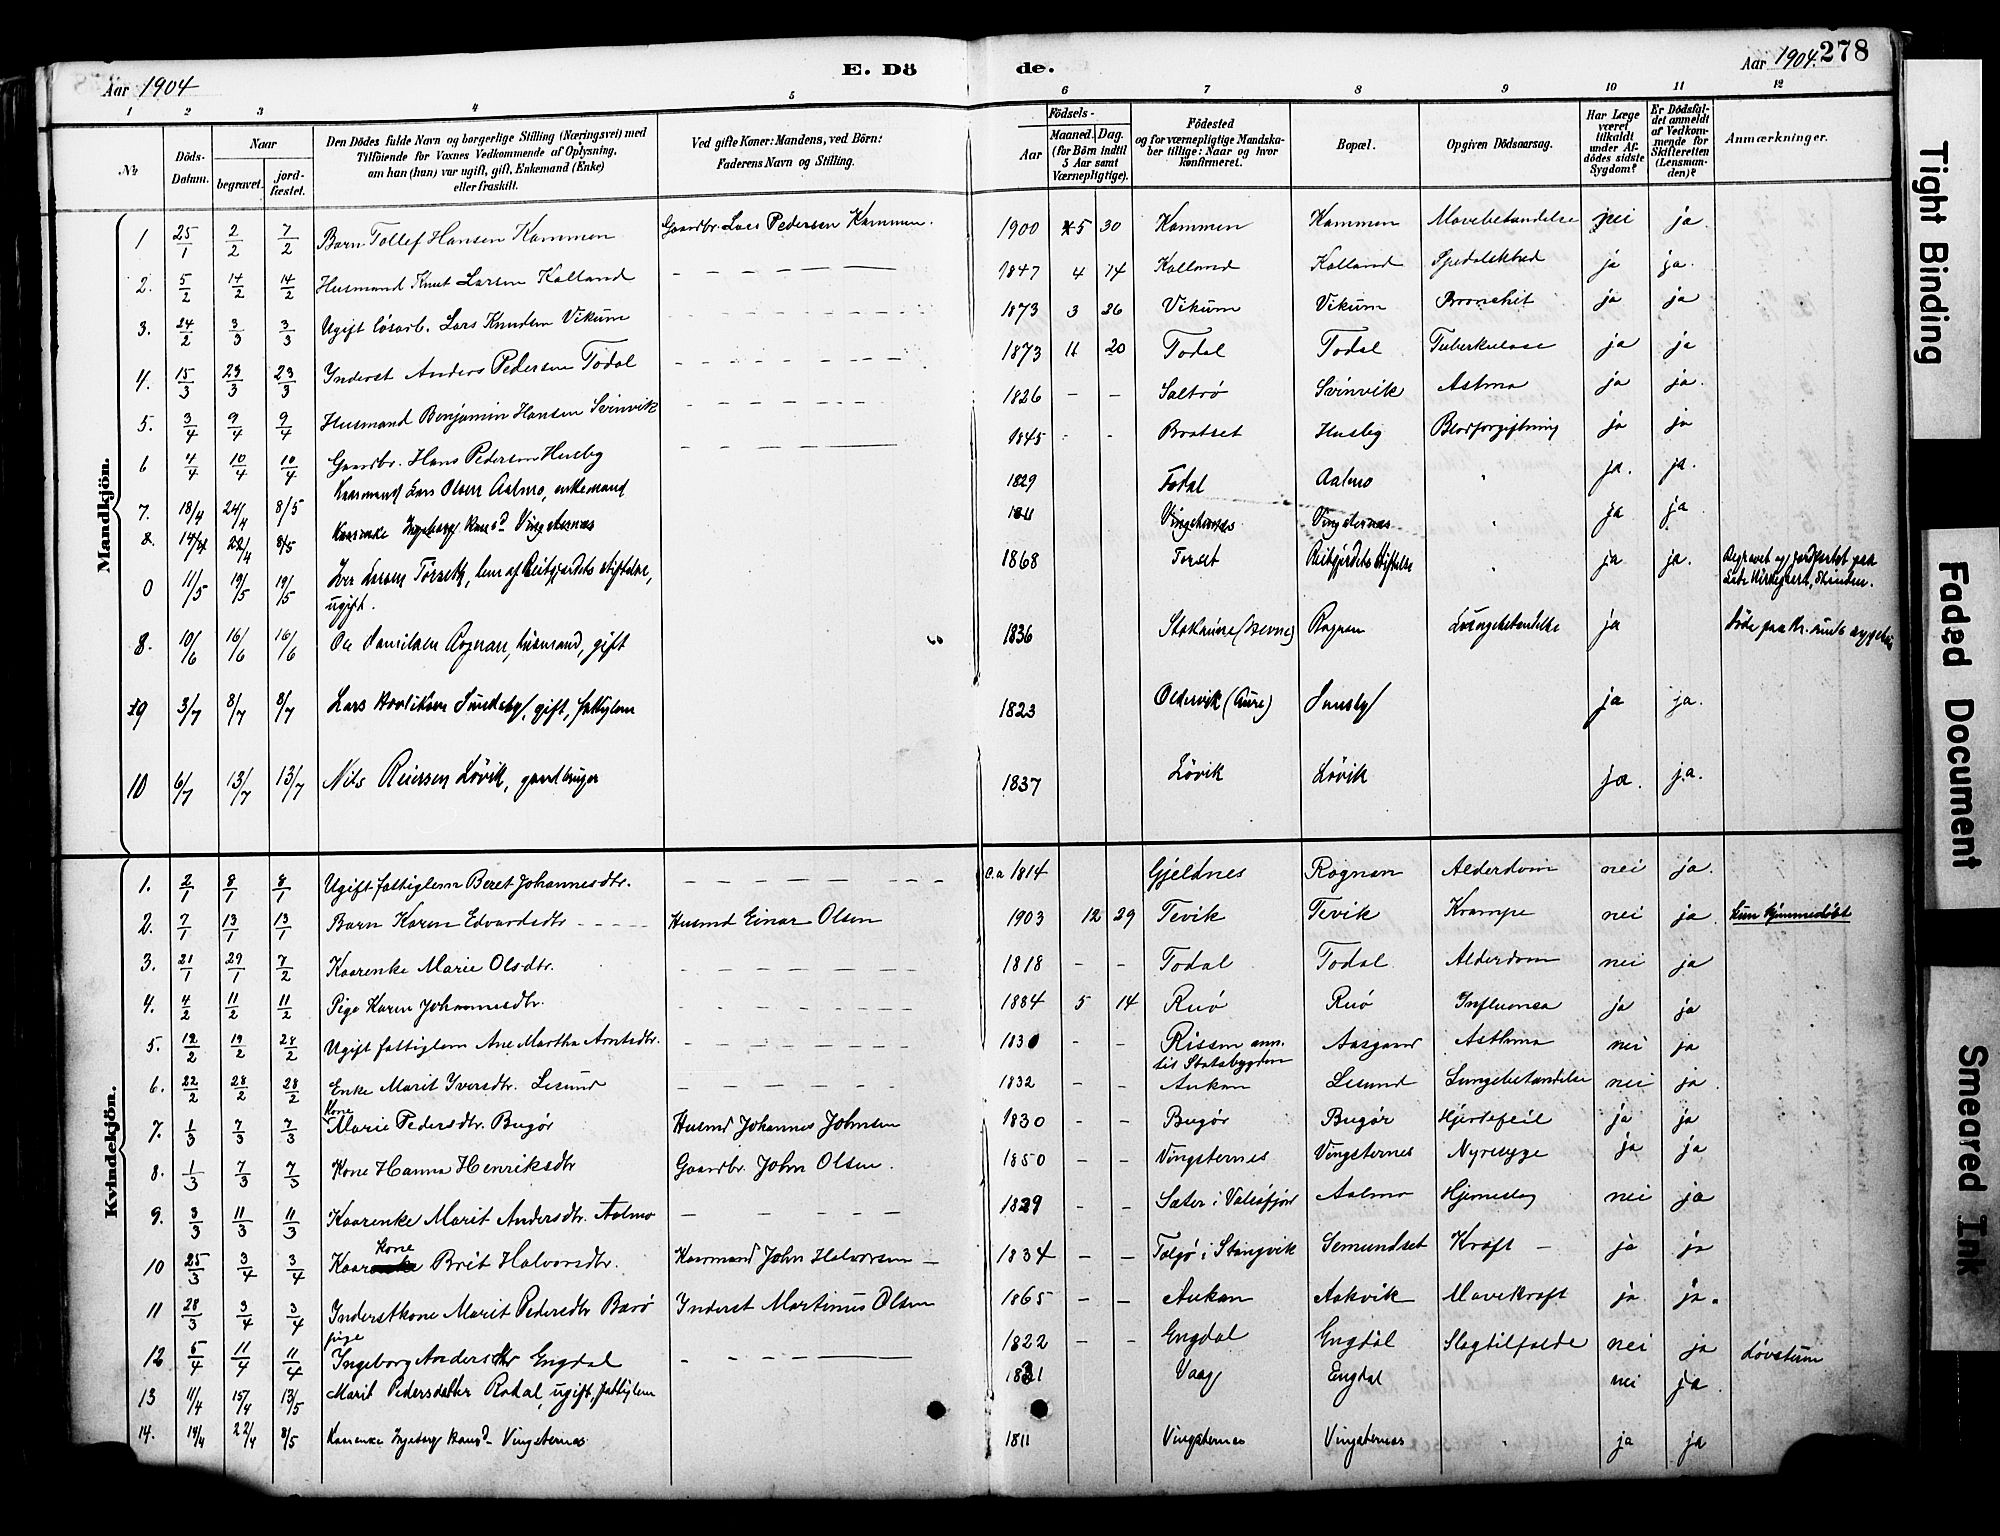 Aar 1904
E. Dö
de.
Aar 1904. 278
1 2 3 4 5 6 7 8 9 10 11 12
No.
Döds-Datum.
Naar
begravet.
jord-fæstet.
Den Dödes fulde Navn og borgerlige Stilling (Næringsvei) med
Tilföiende for Voxnes Vedkommende af Oplysning,
om han (hun) var ugift, gift, Enkemand (Enke)
eller fraskilt.
Ved gifte Koner: Mandens, ved Börn:
Faderens Navn og Stilling.
Födsels-
Aar
Maaned. Dag.
(for Börn indtil
5 Aar samt
Værnepligtige).
Födested
og for værnepligtige Mandska-
ber tillige: Naar og hvor
konfirmeret.
Bopæl.
Opgiven Dödsaarsag.
Har Læge
været
tilkaldt
under Af-
dödes sidste
Sygdom?
Er Dödsfal-
det anmeldt
af Vedkom-
mende for
Skifteretten
(Lensman-
den)?
Anmærkninger.
Mandkjön.
1 25/1 2/2 7/2 Barn Tollef Hansen Kammen Gaardbr. Lars Pedersen Kammen. 1900 5 30 Kammen Kammen Mavebetændelse nei ja.
2. 5/2 14/2 14/2 Husmand Knut Larsen Kalland 1847 4 14 Kalland Kalland Spedalskhed ja ja.
3. 24/2 3/3 3/3 Ugift løsarb. Lars Knudsen Vikum 1873 3 26 Vikum Vikum Bronchit ja ja
4. 15/3 23/3 23/3 Inderst Anders Pedersen Todal 1873 11 20 Todal Todal Tuberkulose ja ja
5. 3/4 9/4 9/4 Husmand Benjamin Hansen Svinvik 1826 - - Saltrø Svinvik Astma ja ja.
6 4/4 10/4 10/4 Gaardbr. Hans Pedersen Husby 1845 - - Bratset Husby Blodforgiftning ja ja
7. 18/4 24/4 8/5 Kaarmand Lars Olsen Aalmo, enkemand 1829 Todal Aalmo " ja. ja.
8. 14/4 22/4 8/5 Kaarenke Ingeborg Hansd. Vingsternæs 1811 Vingsternæs Vingsternæs " ja ja.
0 11/5 19/5 19/5 Iver Larsen Törseth, lem af Reitgjærdets stiftelse,
ugift. 1868 Torset Reitgjærdets Stiftelse ja ja. Begravet og jordfæstet paa
Lade Kirkegaard, Strinden.
8. 10/6 16/6 16/6 Ole Danielsen Rognan, husmand, gift 1836 Stokøine (Hevne) Rognan Lungebetændelse ja Døde paa Kr.sunds sygehus
9 3/7 8/7 8/7 Lars Sundsby, gift, fattiglem 1823 Oldervik (Aure) Sunsby ja ja.
10 6/7 13/7 13/7 Nils Reiersen Lövik, gaardbruger 1837 Lövik Lövik ja. ja.
Kvindekjön.
1. 2/1 8/1 8/1 Ugift fattiglem Beret Johannesdtr. ca 1814 Gjeldnes Rognan Alderdom nei ja.
2. 7/1 13/1 13/1 Barn Karen Edvardsdtr Husmd Einar Olsen 1903 12 29 Tevik Tevik Krampe nei ja Kun hjemmedøbt
3. 21/1 29/1 7/2 Kaarenke Marie Olsdtr. 1818 - - Todal Todal Alderdom nei ja
4. 4/2 11/2 11/2 Pige Karen Johannesdtr. 1884 5 14 Ruø Ruø Influensa ja ja
5. 12/2 19/2 28/2 Ugift fattiglem Ane Martha Arntsdtr. 1830 - - Rissen ann.
til Statsbygden Aasgaard Asthma nei ja
6. 22/2 28/2 28/2 Enke Marit Iversdtr. Lesund 1832 - - Aukan Lesund Lungebetændelse nei ja.
7. 1/3 7/3 7/3 Kone Marie Pedersdtr. Bugør Husmd Johannes Johnsen 1830 - - Bugør Bugør Hjertefeil ja ja
8. 1/3 7/3 7/3 Kone Hanna Henriksdtr Gaardbr. John Olsen. 1850 - - Vingsternes Vingsternes Nyresyge ja ja
9. 3/3 11/3 11/3 Kaarenke Marit Andersdtr. Aalmo 1829 - - Sæter i Valsøfjord Aalmo Hjerneslag nei ja
10 25/3 3/4 3/4 Kaarkone Brit Halvorsdtr. Kaarmand John Halvorsen 1834 - - Talgø i Stangvik Semundset Kræft - ja ja
11 28/3 3/4 3/4 Inderstkone Marit Pedersdtr Barø Inderst Martinus Olsen 1865 - - Aukan Aakvik Mavekræft ja ja.
12 5/4 11/4 11/4 pige Ingeborg Andersdtr Engdal 1822 - - Engdal Engdal Slagtilfælde nei ja døvstum
13 4/4 15/4 13/5 Marit Pedersdatter Rodal, ugift, fattiglem 1831 Vaag Engdal nei ja
14. 14/4 22/4 8/5 Kaarenke Ingeborg Hansd. Vingsternæs 1811 Vingsternes Vingsternæs " ja ja
Tight Binding
Faded Document
Smeared Ink